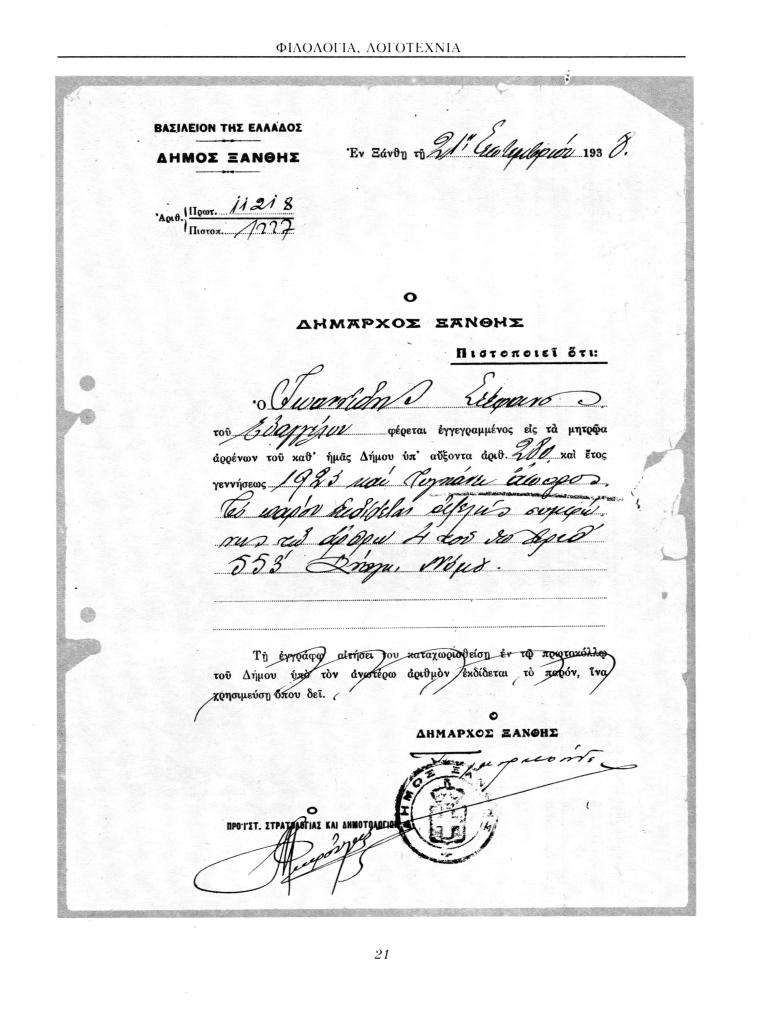 ΦΙΛΟΛΟΓΙΑ, ΛΟΓΟΤΕΧΝΙΑ
ΒΑΣΙΛΕΙΟΝ ΤΗΣ ΕΛΛΑΔΟΣ
ΔΗΜΟΣ ΞΑΝΘΗΣ
Ἐν Ξάνθῃ τῇ 21ῃ Σεπτεμβρίου 1938.
Ἀριθ. Πρωτ. 11218
Πιστοπ. 1227
Ο
ΔΗΜΑΡΧΟΣ ΞΑΝΘΗΣ
Πιστοποιεῖ ὅτι:
Ὁ Ἰωαννίδης Στέφανος
τοῦ Εὐαγγέλου φέρεται ἐγγεγραμμένος εἰς τὰ μητρῷα
ἀρρένων τοῦ καθ' ἡμᾶς Δήμου ὑπ' αὔξοντα ἀριθ. 280 καὶ ἔτος
γεννήσεως 1923 καὶ τυγχάνει ἄπορος
Τὸ παρὸν ἐκδίδεται ἀτελῶς συμφώ
νως τῷ ἄρθρῳ 4 τοῦ ὑπ' ἀριθ
553 Ἀναγκ. Νόμου.
Τῇ ἐγγράφῳ αἰτήσει του καταχωρισθείσῃ ἐν τῷ πρωτοκόλλῳ
τοῦ Δήμου ὑπὸ τὸν ἀνωτέρω ἀριθμὸν ἐκδίδεται τὸ παρόν, ἵνα
χρησιμεύσῃ ὅπου δεῖ.
Ο
ΔΗΜΑΡΧΟΣ ΞΑΝΘΗΣ
ΔΗΜΟΣ ΞΑΝΘΗΣ
Ο
ΠΡΟΪΣΤ. ΣΤΡΑΤΟΛΟΓΙΑΣ ΚΑΙ ΔΗΜΟΤΟΛΟΓΙΟΥ
21